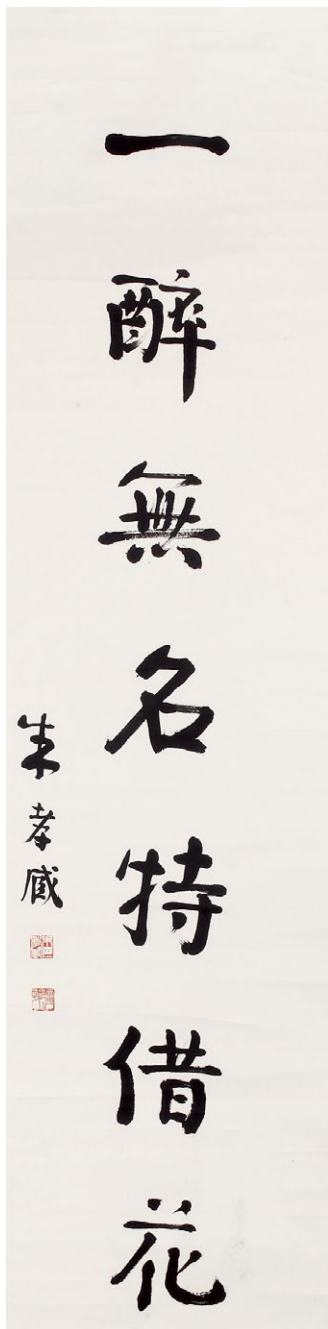 一醉無名特借花
朱孝臧